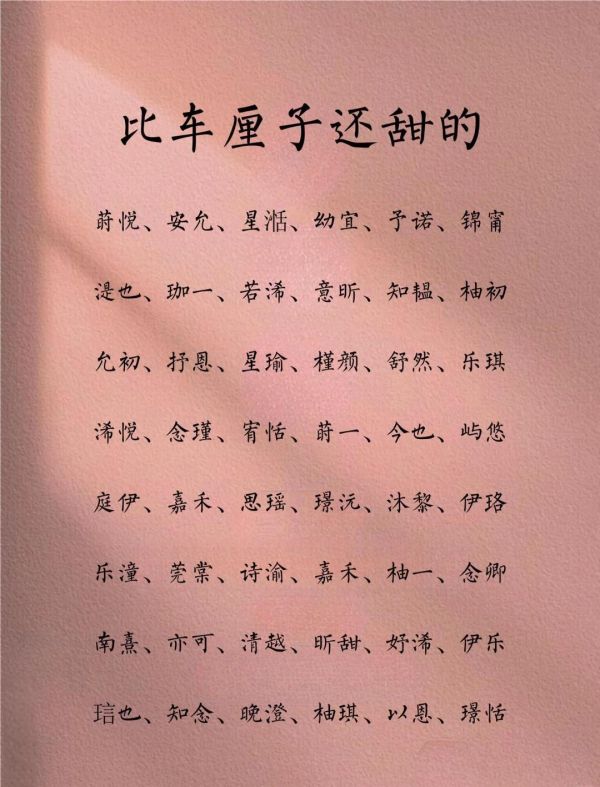 比车厘子还甜的
莳悦、安允、星湉、幼宜、予诺、锦甯
湜也、珈一、若浠、意昕、知韫、柚初
允初、抒恩、星瑜、槿颜、舒然、乐琪
浠悦、念瑾、宥恬、莳一、今也、屿悠
庭伊、嘉禾、思瑶、璟沅、沐黎、伊珞
乐潼、莞棠、诗渝、嘉禾、柚一、念卿
南熹、亦可、清越、昕甜、妤浠、伊乐
琂也、知念、晚澄、柚琪、以恩、璟恬